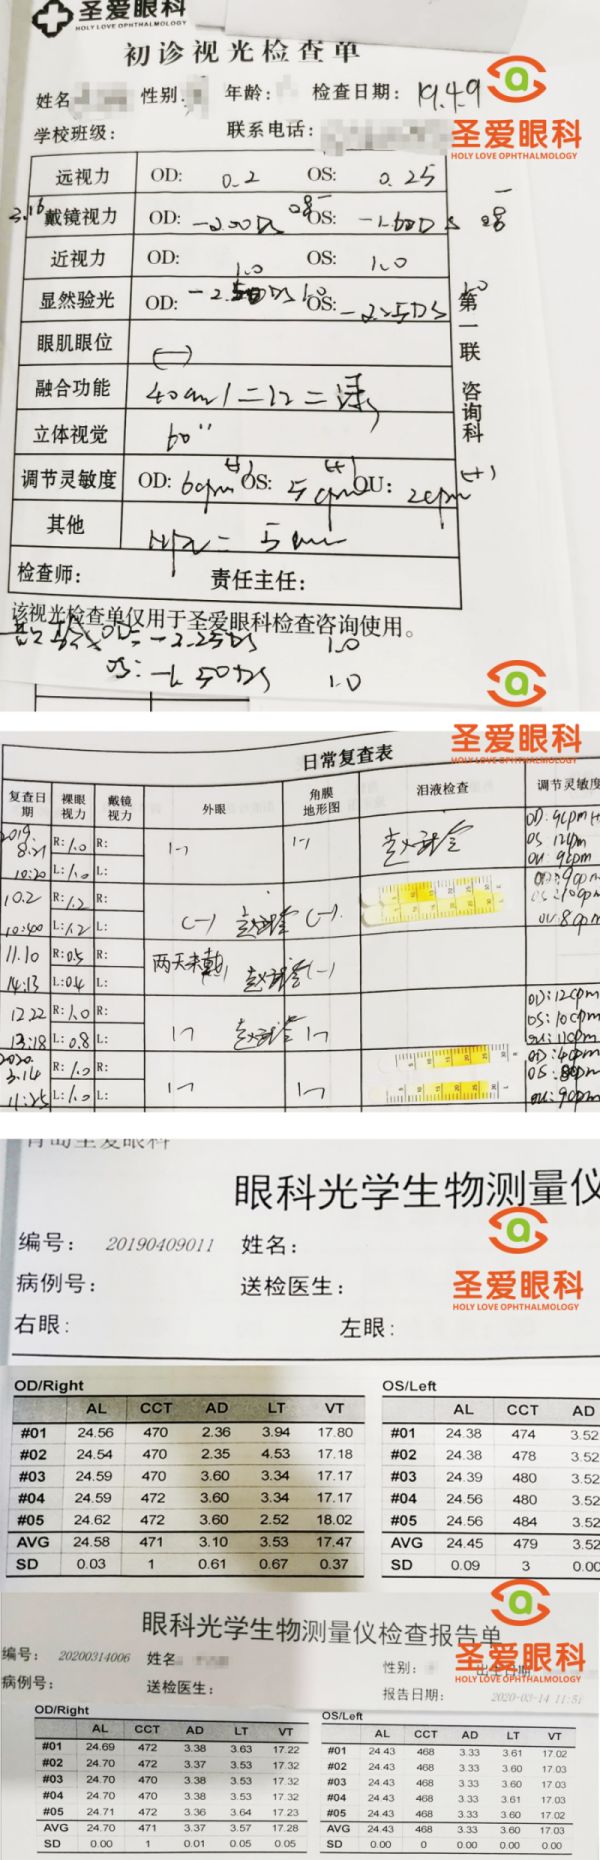 圣爱眼科
HOLY LOVE OPHTHALMOLOGY
初诊视光检查单
姓名 性别: 年龄: 检查日期: 19.4.9
学校班级: 联系电话:
圣爱眼科
HOLY LOVE OPHTHALMOLOGY
远视力 OD: 0.2 OS: 0.25
3.16 戴镜视力 OD: -2.00DS 0.8- OS: -1.60DS 0.8-
近视力 OD: 1.0 OS: 1.0
显然验光 OD: -2.50DS 1.0 OS: -2.25DS 1.0
第一联 咨询科
眼肌眼位 (-)
融合功能 40cm
立体视觉 60"
调节灵敏度 OD: 6cpm(+) OS: 5cpm(+) OU: 2cpm(+)
其他 = 5cm
检查师: 责任主任:
该视光检查单仅用于圣爱眼科检查咨询使用。
OD: -2.25DS 1.0
OS: -1.50DS 1.0
圣爱眼科
HOLY LOVE OPHTHALMOLOGY
日常复查表
复查日期 裸眼视力 戴镜视力 外眼 角膜地形图 泪液检查 调节灵敏度
2019. 8.21 R: 1.0 R: (-) (-) OD: 9cpm
10:20 L: 1.0 L: OS: 12cpm
OU: 9cpm
10.2 R: 1.2 R: (-) (-) OD: 9cpm
10:40 L: 1.2 L: OS: 10cpm
OU: 8cpm
11.10 R: 0.5 R: 两天未戴 (-)
14:13 L: 0.4 L:
12.22 R: 1.0 R: (-) (-) OD: 12cpm
13:18 L: 0.8 L: OS: 10cpm
OU: 11cpm
2020. 3.14 R: 1.0 R: (-) (-) OD: 4cpm
11:25 L: 1.0 L: OS: 8cpm
OU: 9cpm
青岛圣爱眼科
眼科光学生物测量仪
编号: 20190409011 姓名:
病例号: 送检医生:
右眼: 左眼:
圣爱眼科
HOLY LOVE OPHTHALMOLOGY
OD/Right OS/Left
AL CCT AD LT VT AL CCT AD
#01 24.56 470 2.36 3.94 17.80 #01 24.38 474 3.52
#02 24.54 470 2.35 4.53 17.18 #02 24.38 478 3.52
#03 24.59 470 3.60 3.34 17.17 #03 24.39 480 3.52
#04 24.59 472 3.60 3.34 17.17 #04 24.56 480 3.52
#05 24.62 472 3.60 2.52 18.02 #05 24.56 484 3.52
AVG 24.58 471 3.10 3.53 17.47 AVG 24.45 479 3.52
SD 0.03 1 0.61 0.67 0.37 SD 0.09 3 0.00
眼科光学生物测量仪检查报告单
编号: 20200314006 姓名: 性别: 出生日期
病例号: 送检医生: 报告日期: 2020-03-14 11:51
圣爱眼科
HOLY LOVE OPHTHALMOLOGY
OD/Right OS/Left
AL CCT AD LT VT AL CCT AD LT VT
#01 24.69 472 3.38 3.63 17.22 #01 24.43 468 3.33 3.61 17.02
#02 24.70 472 3.37 3.53 17.32 #02 24.43 468 3.33 3.60 17.03
#03 24.70 470 3.38 3.53 17.32 #03 24.43 468 3.33 3.60 17.03
#04 24.70 470 3.38 3.53 17.32 #04 24.43 468 3.33 3.61 17.03
#05 24.71 472 3.36 3.64 17.23 #05 24.43 468 3.33 3.60 17.02
AVG 24.70 471 3.37 3.57 17.28 AVG 24.43 468 3.33 3.60 17.03
SD 0.00 1 0.01 0.05 0.05 SD 0.00 0 0.00 0.00 0.00